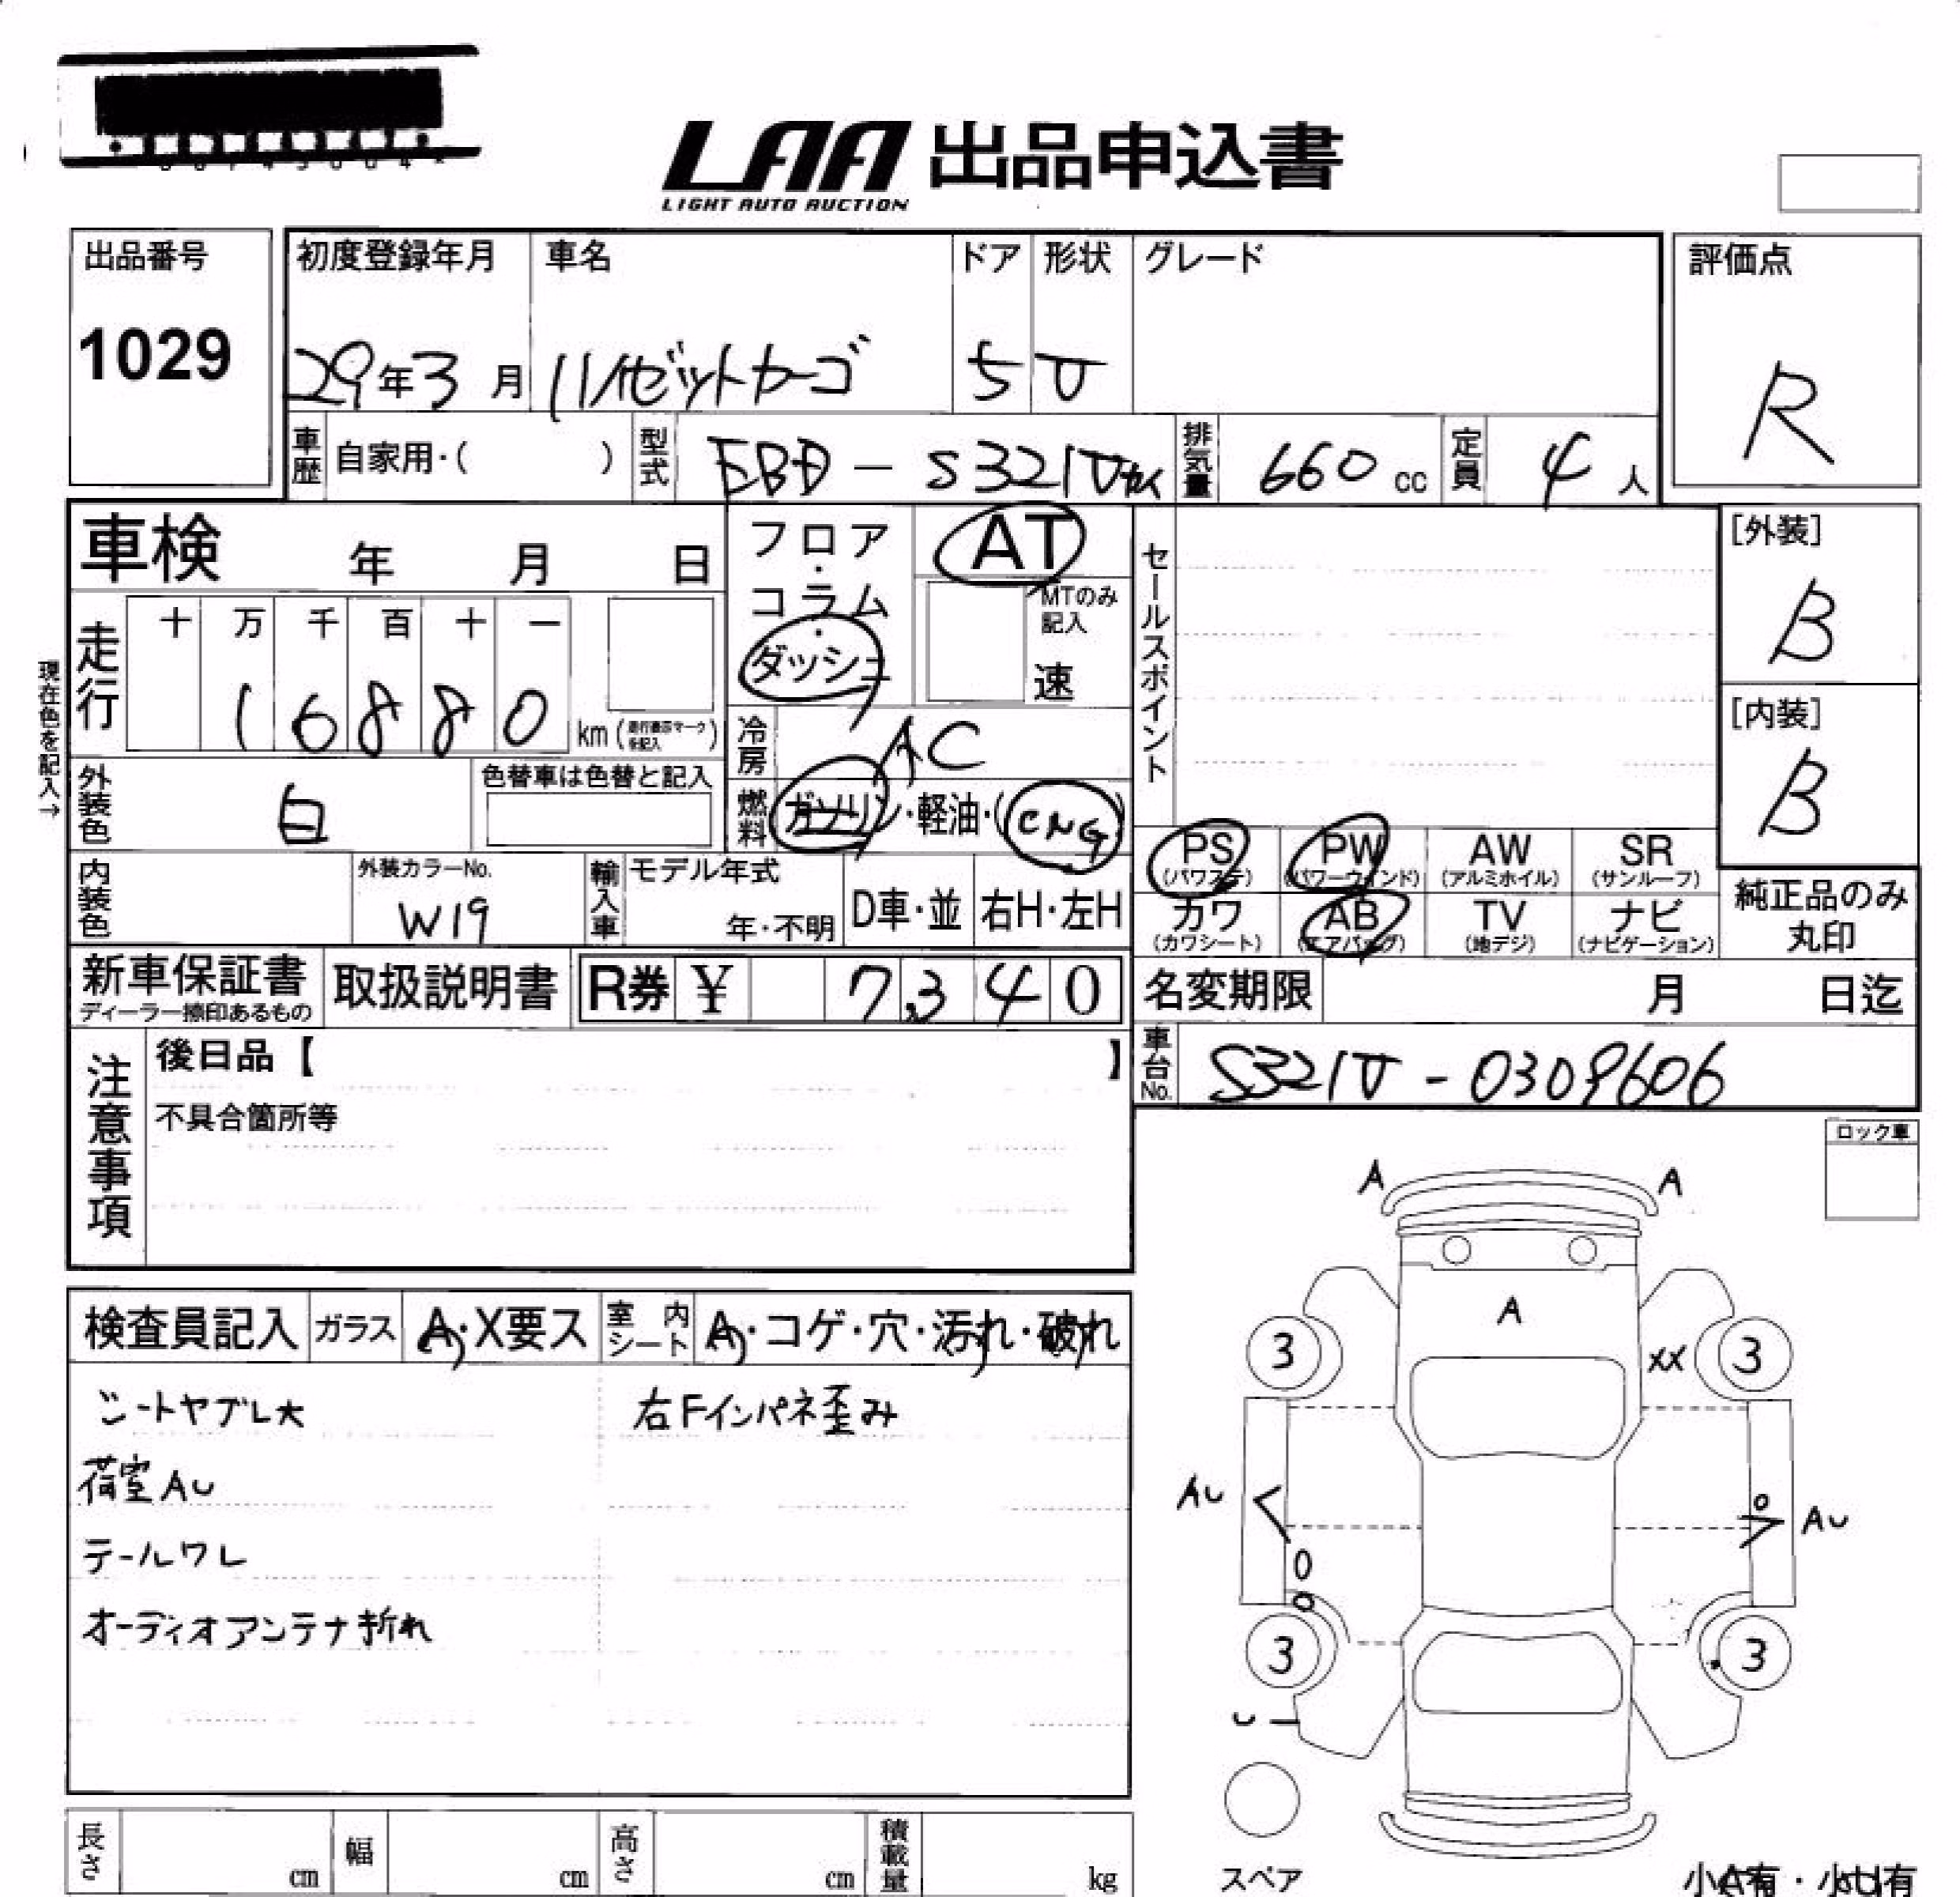 LAA 出品申込書
LIGHT AUTO AUCTION
出品番号
1029
初度登録年月
29年3月
車名
ハイゼットカーゴ
ドア
5
形状
V
グレード
評価点
R
車歴 自家用・( )
型式 EBD-S321V
排気量 660 cc
定員 4人
車検 年 月 日
フロア・コラム・ダッシュ
AT
MTのみ記入
速
セールスポイント
[外装]
B
[内装]
B
現在色を記入→
走行
十 万 千 百 十 一
1 6 8 8 0 km (走行表示マークを記入)
冷房 AC
外装色 白
色替車は色替と記入
燃料 ガソリン・軽油・(CNG)
PS (パワステ)
PW (パワーウインド)
AW (アルミホイル)
SR (サンルーフ)
カワ (カワシート)
AB (エアバッグ)
TV (地デジ)
ナビ (ナビゲーション)
純正品のみ
丸印
内装色
外装カラーNo.
W19
輸入車
モデル年式
年・不明
D車・並
右H・左H
新車保証書
ディーラー捺印あるもの
取扱説明書
R券 ¥ 7,340
名変期限 月 日迄
車台No. S321V-0309606
注意事項
後日品【 】
不具合箇所等
ロック車
検査員記入
ガラス A・X要ス
室内シート A・コゲ・穴・汚れ・破れ
シートヤブレ大
右Fインパネ歪み
荷室AU
テールワレ
オーディオアンテナ折れ
A A
A
3 XX 3
AU AU
3 3
U
スペア
長さ cm
幅 cm
高さ cm
積載量 kg
小A有・小U有